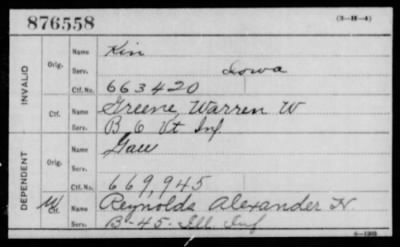 876558 (3-H-4)
INVALID
Orig. Name Kin
Serv. Iowa
Ctf. No. 663420
Ctf. Name Greene, Warren W
Serv. B 6 Vt Inf
DEPENDENT
Orig. Name Gau
Serv.
Ctf. No. 669,945
Ctf. Name Reynolds Alexander H.
Serv. B-45- Ill. Inf